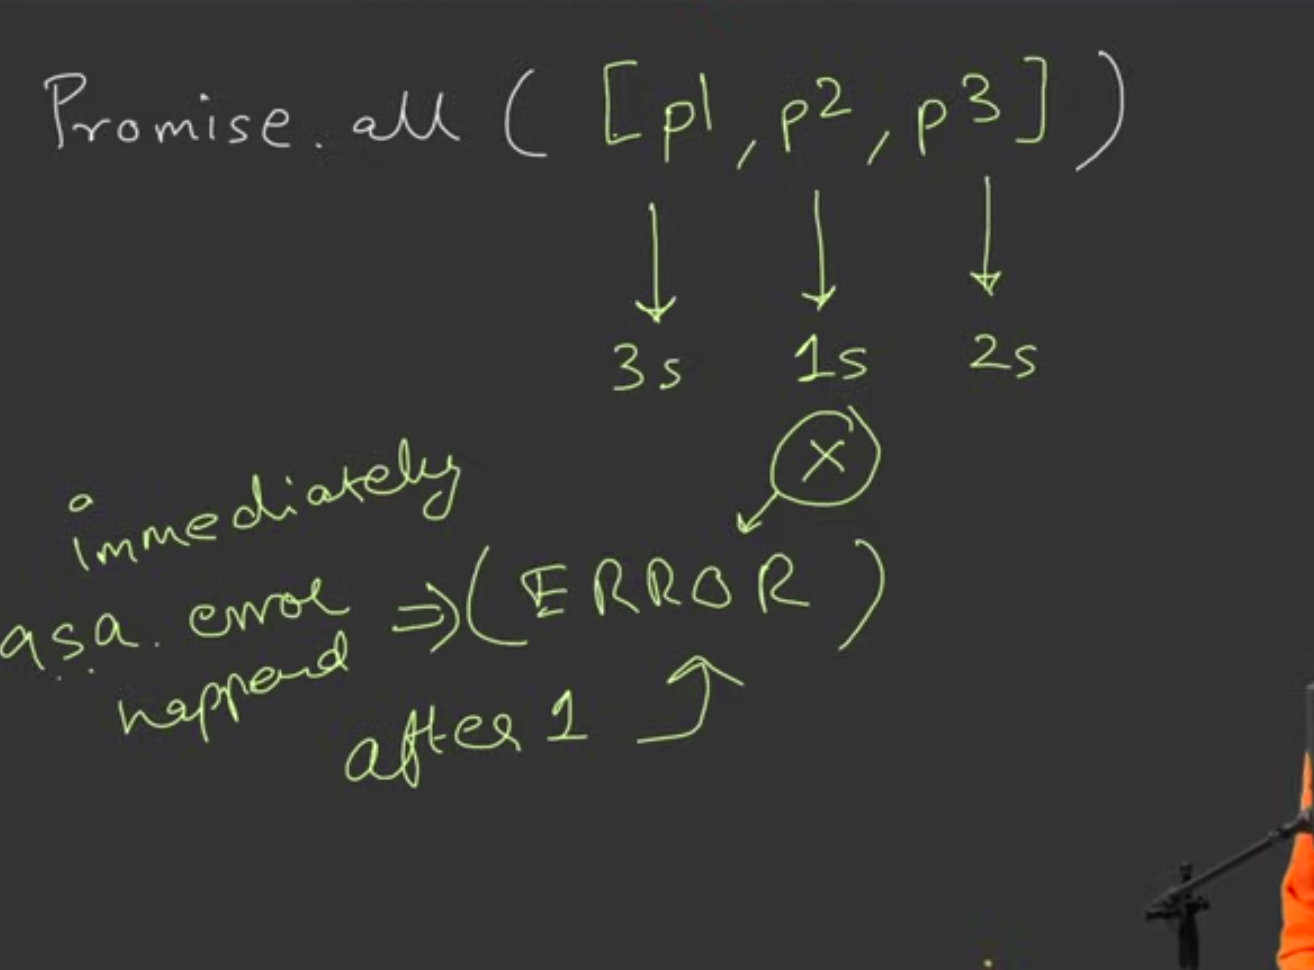 Promise.all ( [p1, p2, p3] )
3s 1s 2s
X
immediately
asa. error
happend
=> (ERROR)
after 1